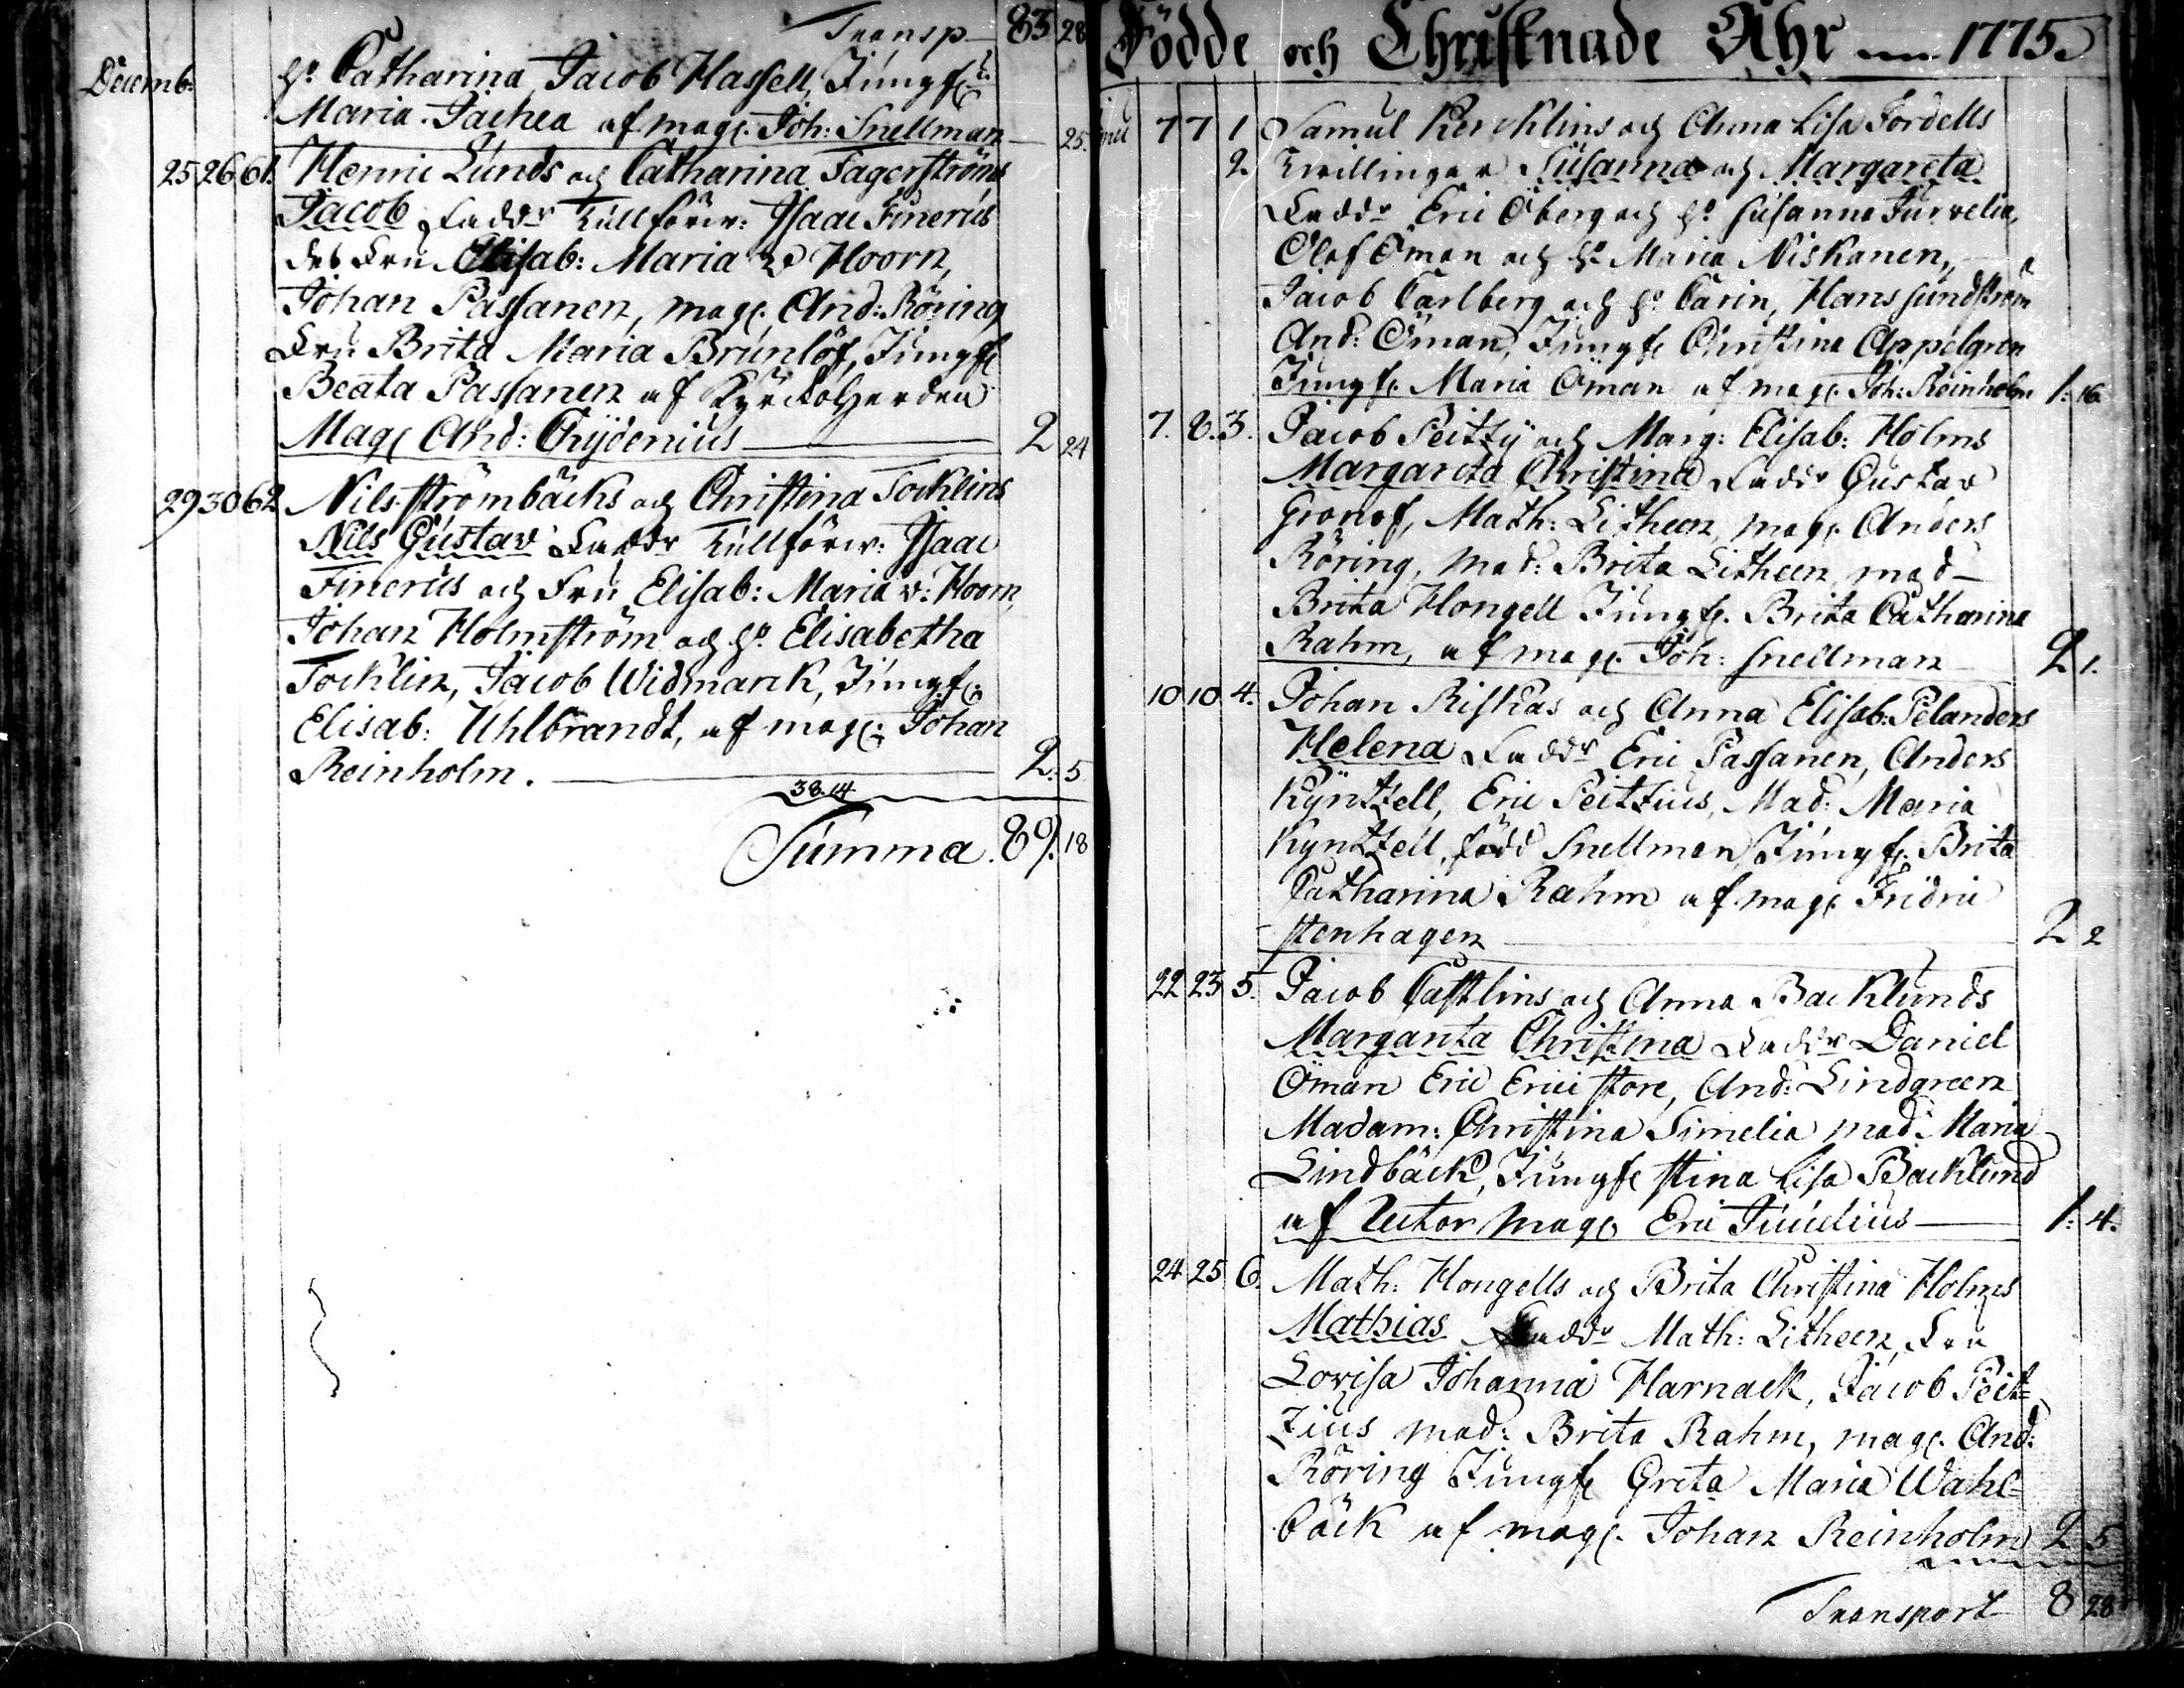 Transp 83 28
Decemb: h: Catharina, Jacob Hassell, Jungf:
Maria Pachea af mag: Joh: Snellman 25.
25 26 61. Henric Lunds och Catharina Fagerströms
Jacob Faddr Tullförw: Isaac Finerus
des Fru Elisab: Maria v Hoorn,
Johan Passanen, mag: And: Röring
Fru Brita Maria Brunlöf, Jungf:
Beata Passanen af Kyrckoherden
Mag: And: Chydenius 2 24
29 30 62 Nils Strömbäcks och Christina Tocklins
Nils Gustav Faddr Tullförw: Isaac
Finerus och Fru Elisab: Maria v: Hoorn,
Johan Holmström och h: Elisabetha
Tocklin, Jacob Widmarck, Jungf:
Elisab: Uhlbrandt, af mag: Johan
Reinholm. 2. 5
38.14
Summa. 89. 18
Födde och Christnade Åhr 1775.
7 7 1 Samul Kercklins och Anna Lisa Fordells
2. Twillingar Susanna och Margareta
Faddr Eric Öberg och h: Susanna Jurvelia,
Olof Öman och h: Maria Niskanen,
Jacob Carlberg och h: Carin, Hans Sundström
And: Öman, Jungf: Christina Appelgren
Jungf: Maria Öman af mag: Joh: Reinholm 1. 16
7. 8. 3. Jacob Peitzy och Marg: Elisab: Holms
Margareta Christina Faddr Gustav
Gronof, Math: Litheen, mag: Anders
Röring, mad: Brita Litheen, mad
Brita Hongell Jungf: Brita Catharina
Rahm, af mag: Joh: Snellman 2 1.
10 10 4. Johan Riskas och Anna Elisab: Pelanders
Helena Faddr Eric Passanen, Anders
Kyntzell, Eric Peitzius, Mad: Maria
Kyntzell, född Snellman, Jungf: Brita
Catharina Rahm af mag: Fridric
Stenhagen 2 2
22 23 5. Jacob Castlins och Anna Backlunds
Margareta Christina Faddr Daniel
Öman Eric Ericistore, And: Lindgreen
Madam: Christina Simelia mad: Maria
Lindbäck, Jungf: Stina Lisa Backlund
af Rector mag: Eric Juvelius 1: 4.
24 25 6. Math: Hongells och Brita Christina Holms
Mathias Faddr Math: Litheen, Fru
Lovisa Johanna Harnack, Jacob Peit=
zius mad: Brita Rahm, mag: And:
Röring Jungf: Greta Maria Wahl=
bäck af mag: Johan Reinholm 2 5
Transport 8 28